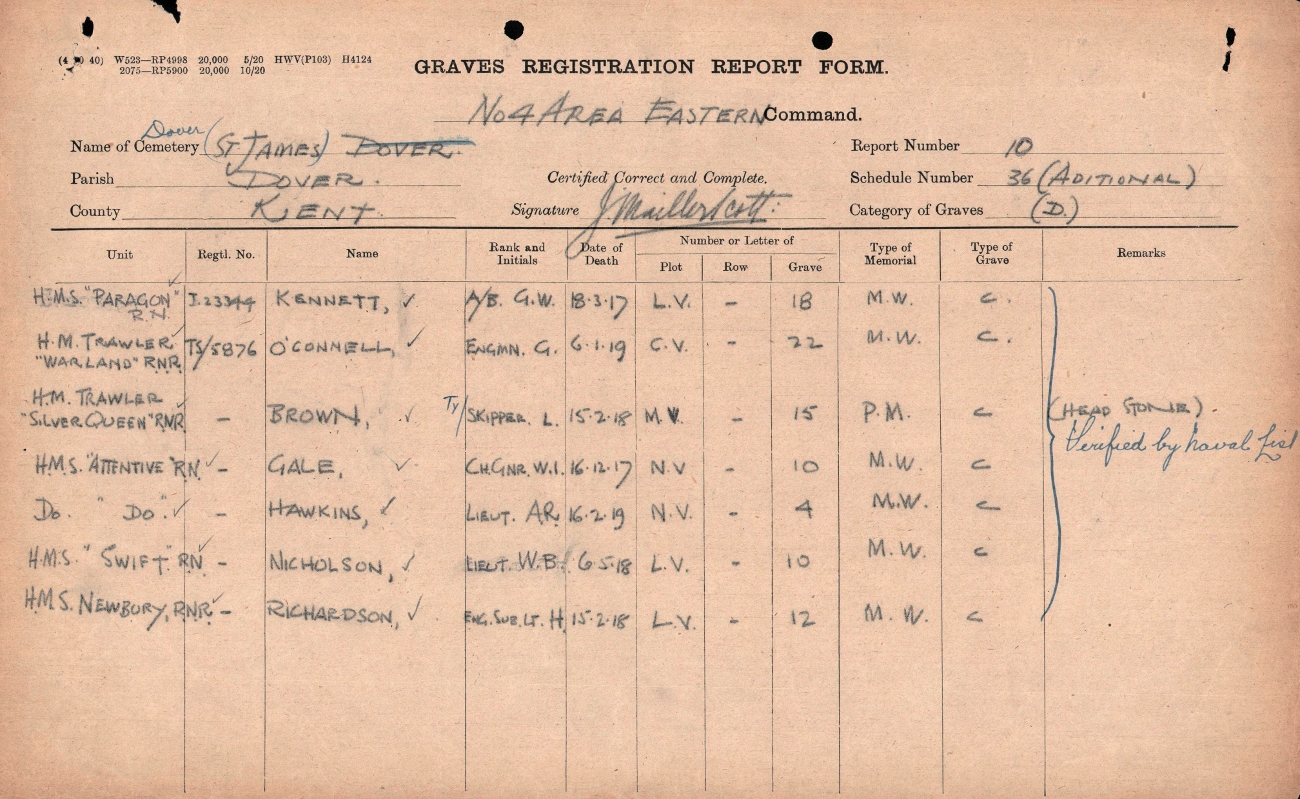 (4 40) W523—RP4998 20,000 5/20 HWV(P103) H4124
2075—RP5900 20,000 10/20
GRAVES REGISTRATION REPORT FORM.
No 4 AREA EASTERN Command.
Dover
Name of Cemetery (ST JAMES) DOVER. Report Number 10
Parish DOVER. Certified Correct and Complete. Schedule Number 36 (ADITIONAL)
County KENT. Signature Category of Graves (D.)
Unit Regtl. No. Name Rank and Initials Date of Death Number or Letter of Type of Memorial Type of Grave Remarks
Plot Row Grave
H.M.S. "PARAGON" J.23344 KENNETT, ✓ A/B. G.W. 18.3.17 L.V. – 18 M.W. C.
R.N.
H.M. TRAWLER T.S/5876 O'CONNELL, ✓ ENGMN. G. 6.1.19 C.V. – 22 M.W. C.
"WARLAND" RNR
H.M. TRAWLER
"SILVER QUEEN" RNR – BROWN, ✓ Ty/ SKIPPER. L. 15.2.18 M.V. – 15 P.M. C (HEAD STONE)
Verified by Naval List
H.M.S. "ATTENTIVE" RN ✓ – GALE, ✓ CH.GNR. W.I. 16.12.17 N.V – 10 M.W. C
Do. " Do. ✓ – HAWKINS, ✓ LIEUT. A.R. 16.2.19 N.V. – 4 M.W. C
H.M.S. "SWIFT" RN ✓ – NICHOLSON, ✓ LIEUT. W.B. 6.5.18 L.V. – 10 M.W. C
H.M.S. NEWBURY, RNR ✓ – RICHARDSON, ✓ ENG. SUB. LT. H. 15.2.18 L.V. – 12 M.W. C